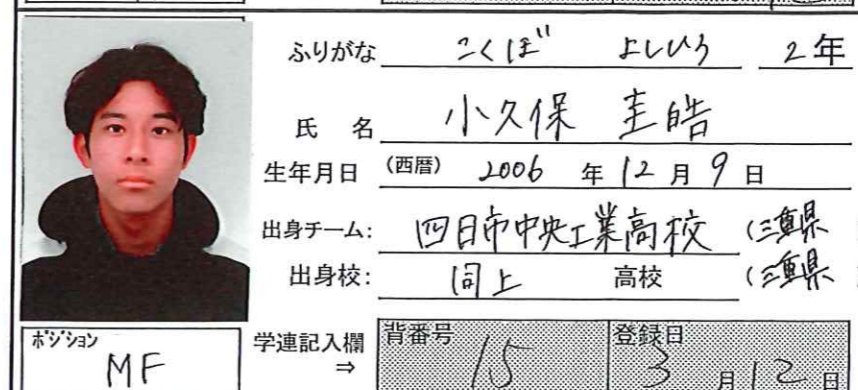 ふりがな こくぼ よしひろ 2年
氏 名 小久保 圭皓
生年月日 (西暦) 2006 年 12 月 9 日
出身チーム: 四日市中央工業高校 (三重県
出身校: 同上 高校 (三重県
ポジション MF
学連記入欄 ⇒ 背番号 15 登録日 3 月 12 日